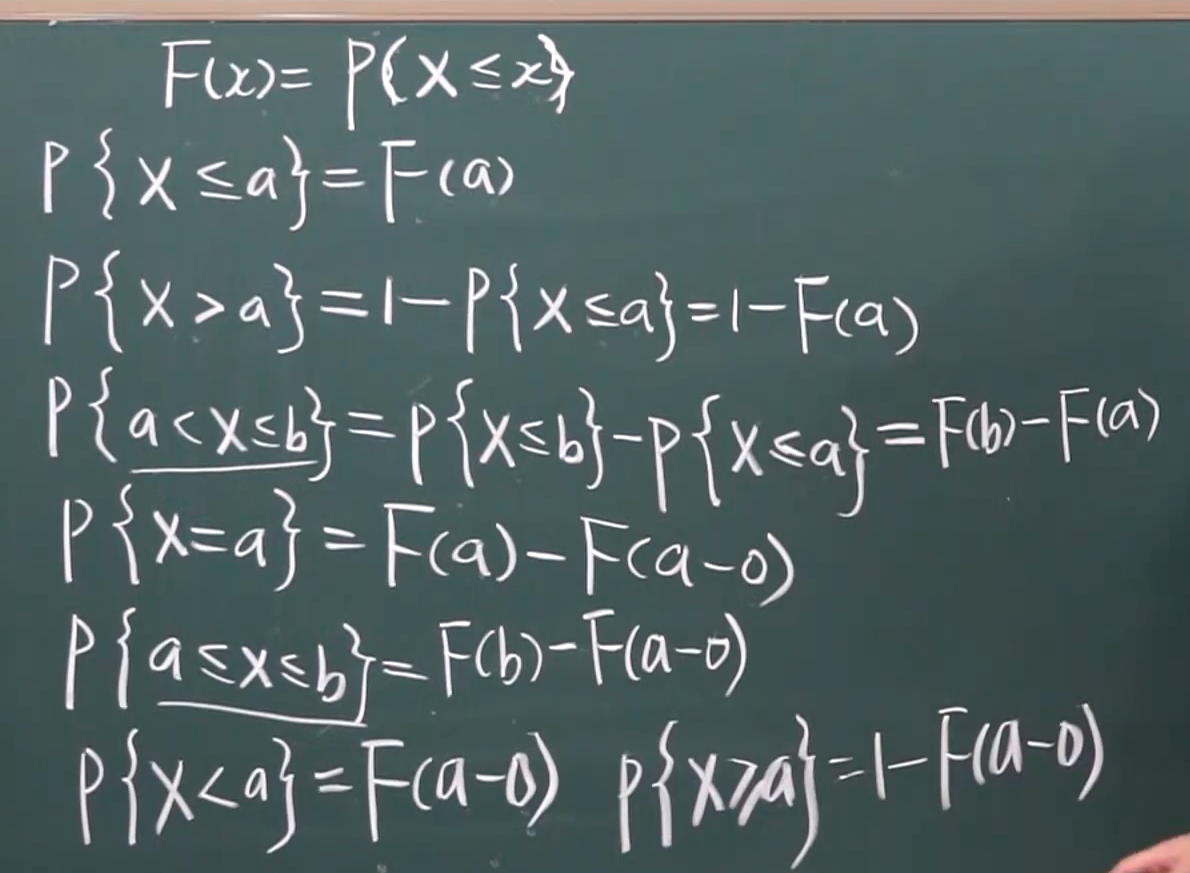 F(x)=P{X≤x}
P{X≤a}=F(a)
P{X>a}=1-P{X≤a}=1-F(a)
P{a<X≤b}=P{X≤b}-P{X≤a}=F(b)-F(a)
P{X=a}=F(a)-F(a-0)
P{a≤X≤b}=F(b)-F(a-0)
P{X<a}=F(a-0) P{X≥a}=1-F(a-0)